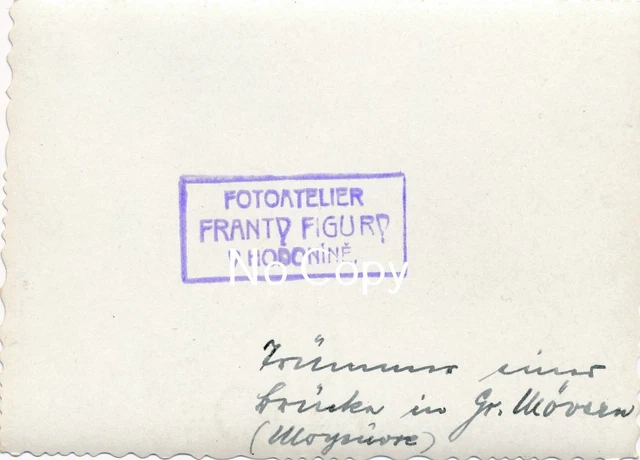 FOTOATELIER
FRANTY FIGURY
V HODONÍNĚ.
No Copy
Trümmer einer
Brücke in Gr. Mövern
(Moyeuvre)